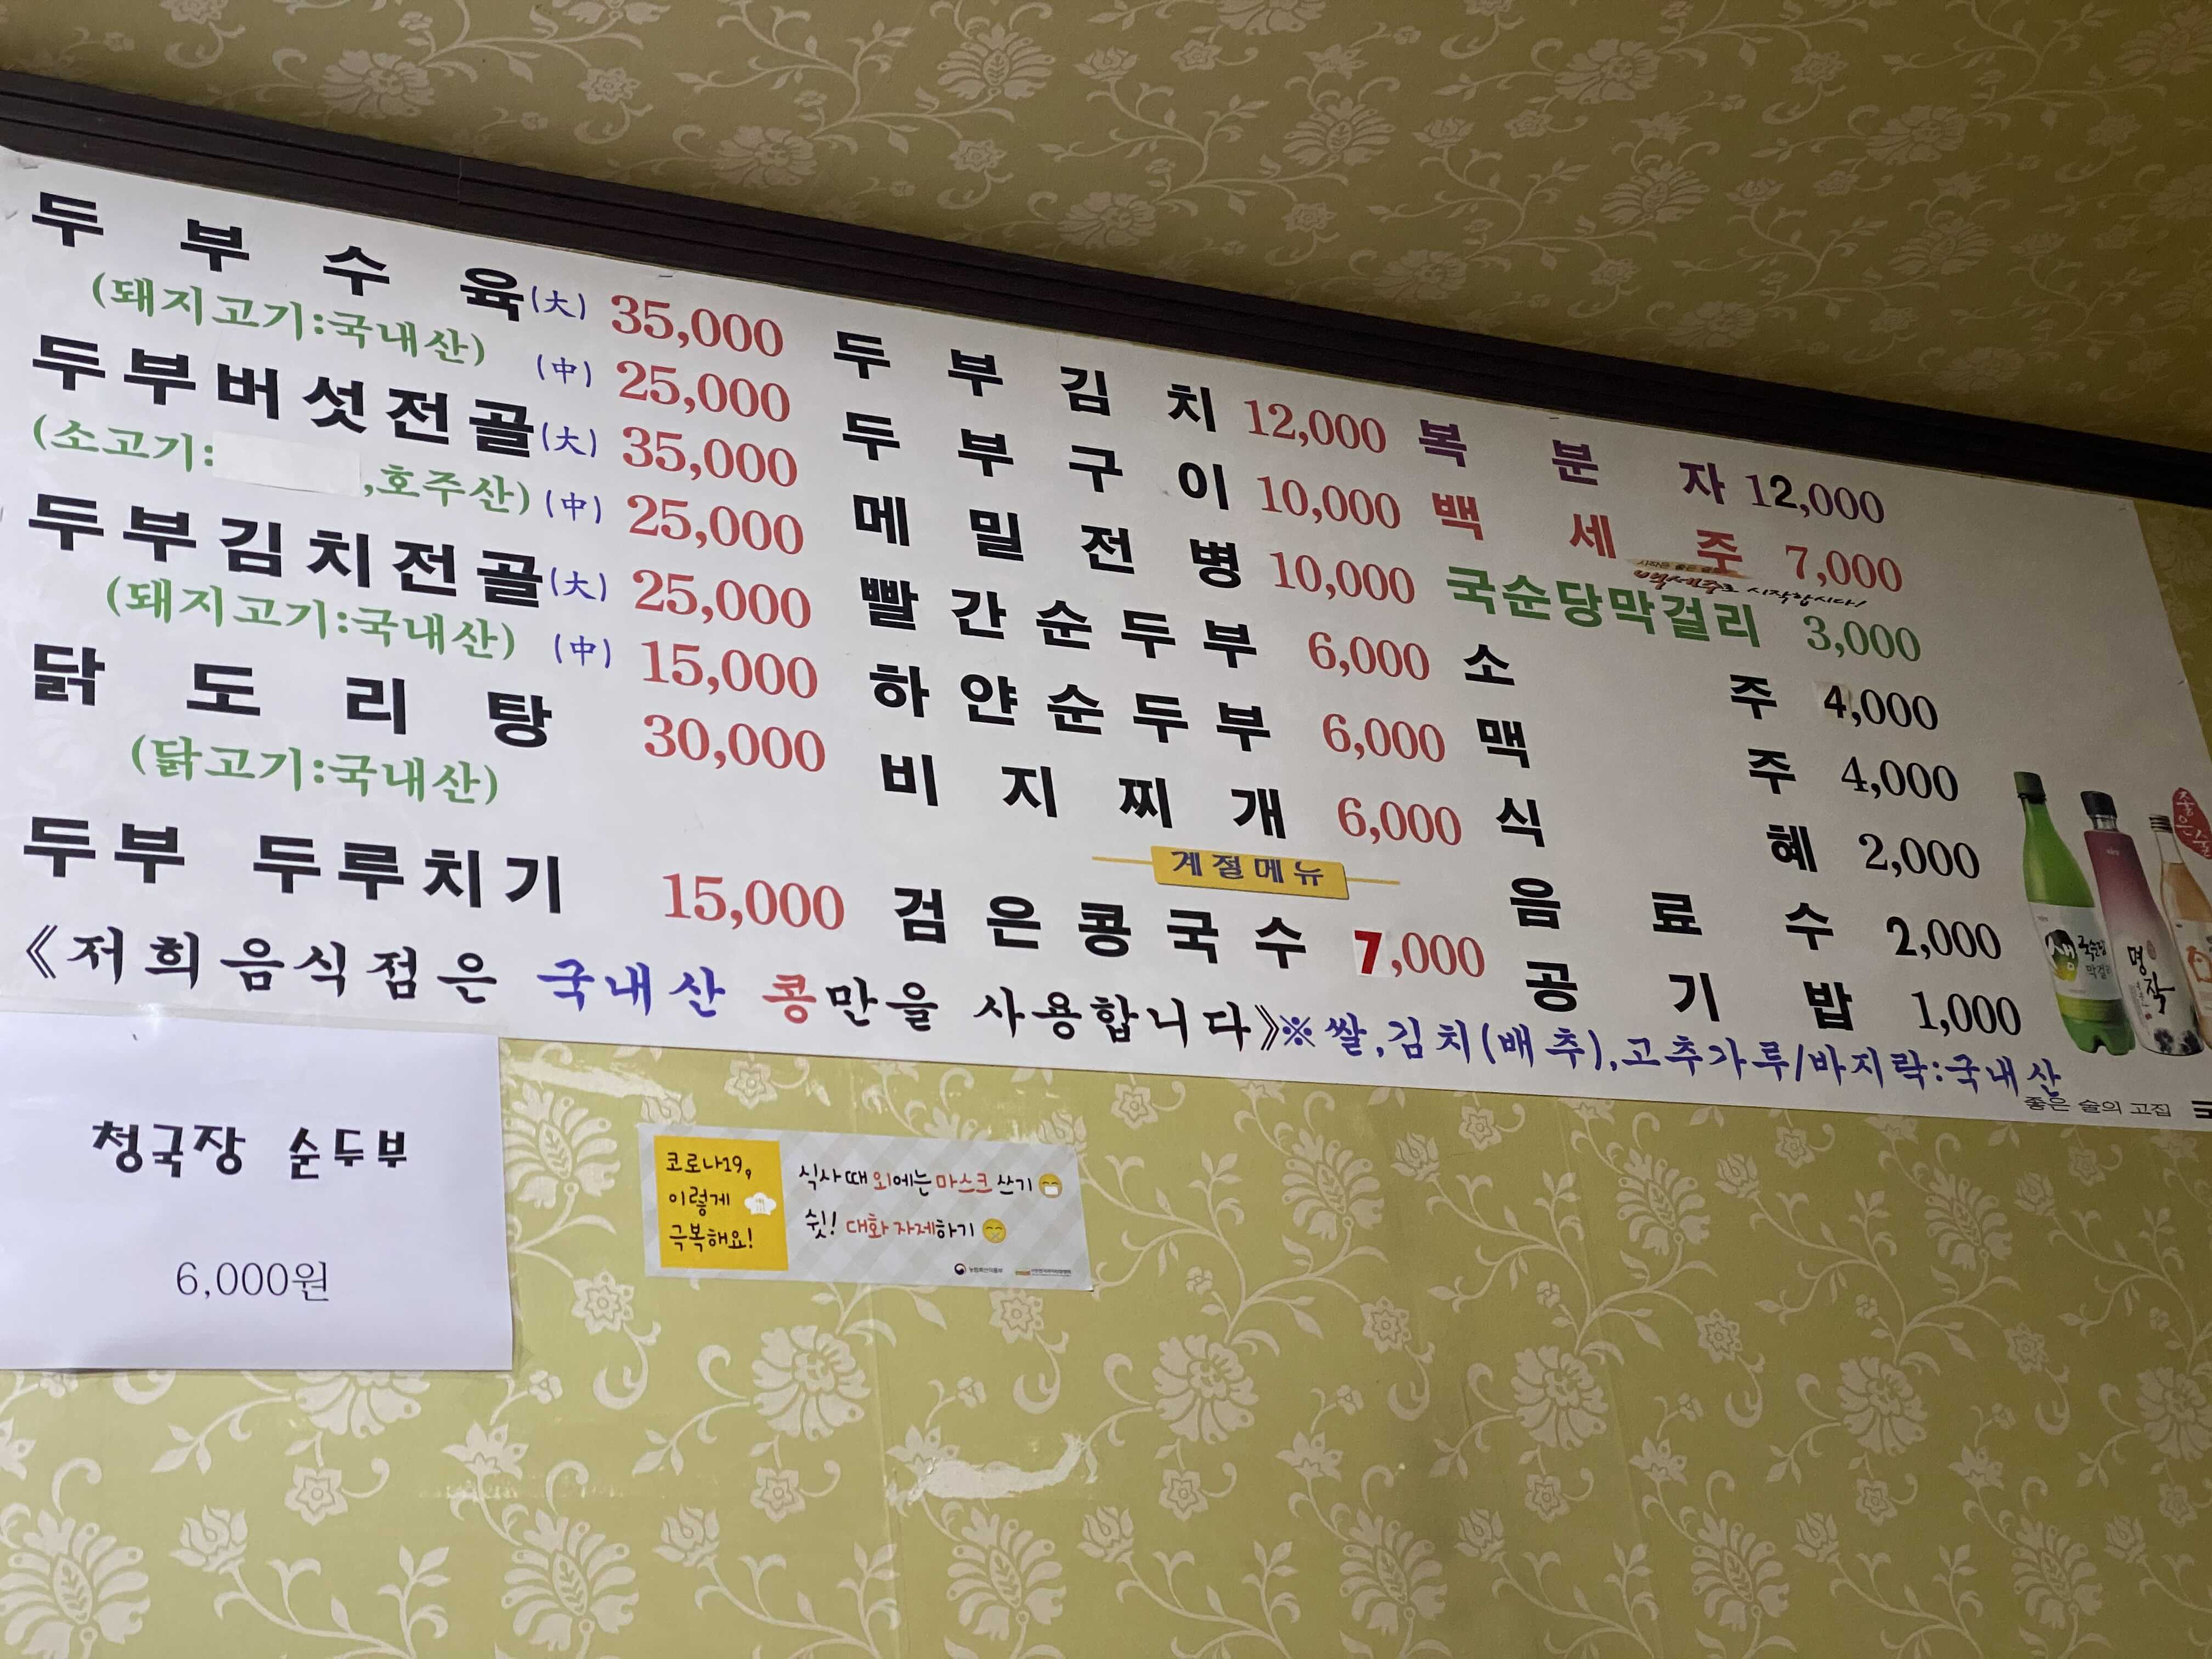 두부수육(大) 35,000
(돼지고기:국내산) (中) 25,000
두부버섯전골(大) 35,000
(소고기: ,호주산) (中) 25,000
두부김치전골(大) 25,000
(돼지고기:국내산) (中) 15,000
닭도리탕 30,000
(닭고기:국내산)
두부 두루치기 15,000
두부김치 12,000
두부구이 10,000
메밀전병 10,000
빨간순두부 6,000
하얀순두부 6,000
비지찌개 6,000
계절메뉴
검은콩국수 7,000
복분자 12,000
백세주 7,000
백세주로 시작합시다!
국순당막걸리 3,000
소주 4,000
맥주 4,000
식혜 2,000
음료수 2,000
공기밥 1,000
생 국순당 막걸리
명작
좋은술
《저희음식점은 국내산 콩만을 사용합니다》※쌀,김치(배추),고추가루/바지락:국내산
좋은 술의 고집
청국장 순두부
6,000원
코로나19,
이렇게
극복해요!
식사 때 외에는 마스크 쓰기
쉿! 대화 자제하기
농림축산식품부